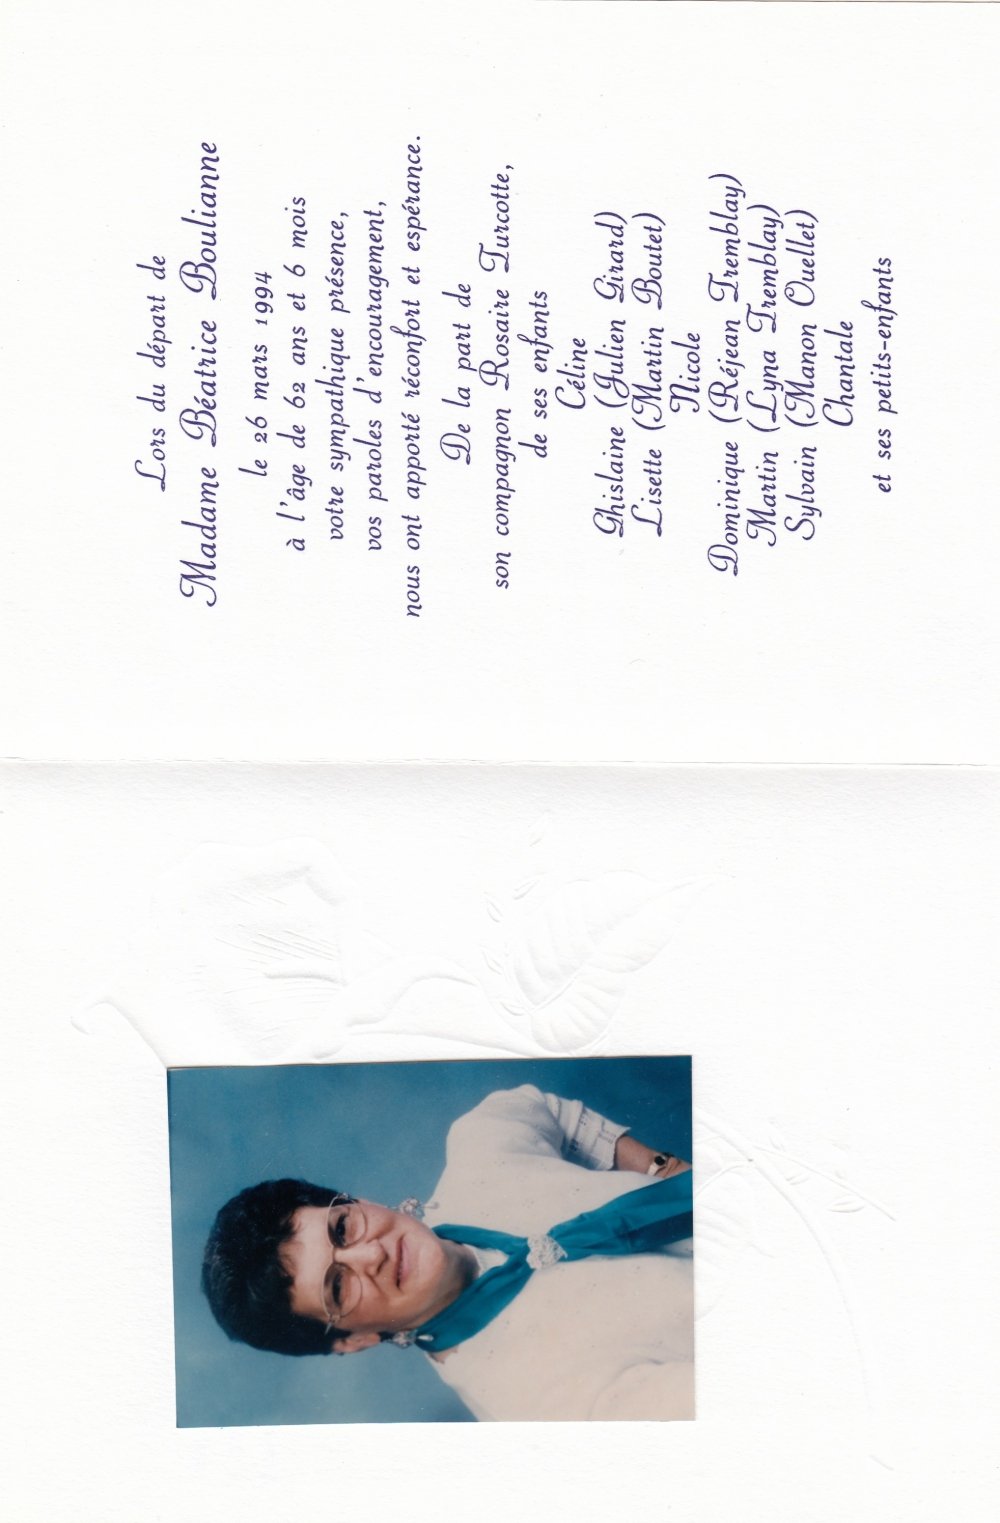 Lors du départ de
Madame Béatrice Boulianne
le 26 mars 1994
à l'âge de 62 ans et 6 mois
votre sympathique présence,
vos paroles d'encouragement,
nous ont apporté réconfort et espérance.
De la part de
son compagnon Rosaire Turcotte,
de ses enfants
Céline
Ghislaine (Julien Girard)
Lisette (Martin Boutet)
Nicole
Dominique (Réjean Tremblay)
Martin (Lyna Tremblay)
Sylvain (Manon Ouellet)
Chantale
et ses petits-enfants